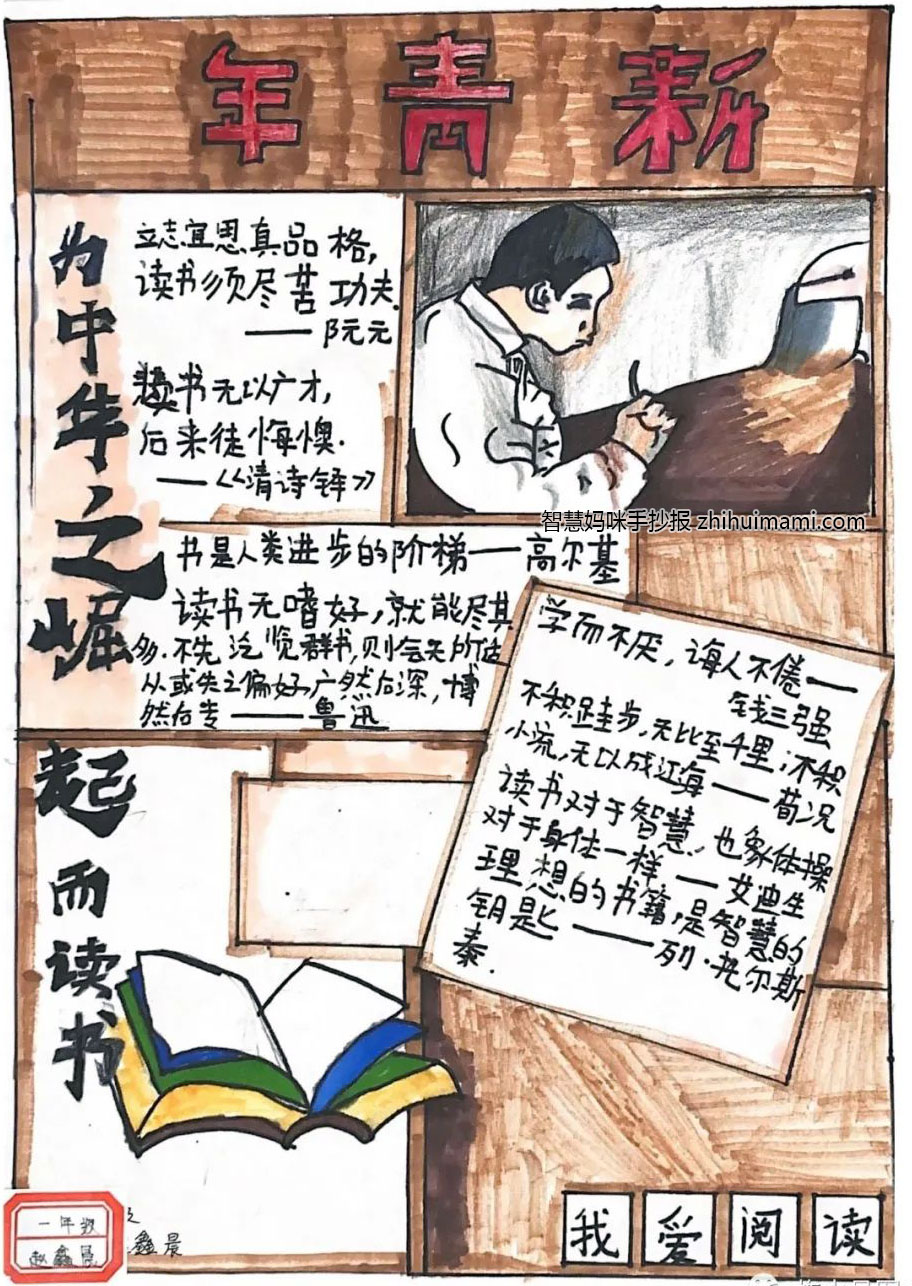 新青年
为中华之崛起而读书
立志宜思真品格,
读书须尽苦功夫.
——阮元
读书无以广才,
后来徒悔懊.
——《清诗铎》
智慧妈咪手抄报 zhihuimami.com
书是人类进步的阶梯——高尔基
读书无嗜好,就能尽其
多.不先泛览群书,则会无所适
从或失之偏好,广然后深,博
然后专——鲁迅
学而不厌,诲人不倦——
钱三强
不积跬步,无比至千里;不积
小流,无以成江海——荀况
读书对于智慧,也象体操
对于身体一样——艾迪生
理想的书籍,是智慧的
钥匙——列·托尔斯
泰.
一年级
赵鑫晨
鑫晨
我爱阅读